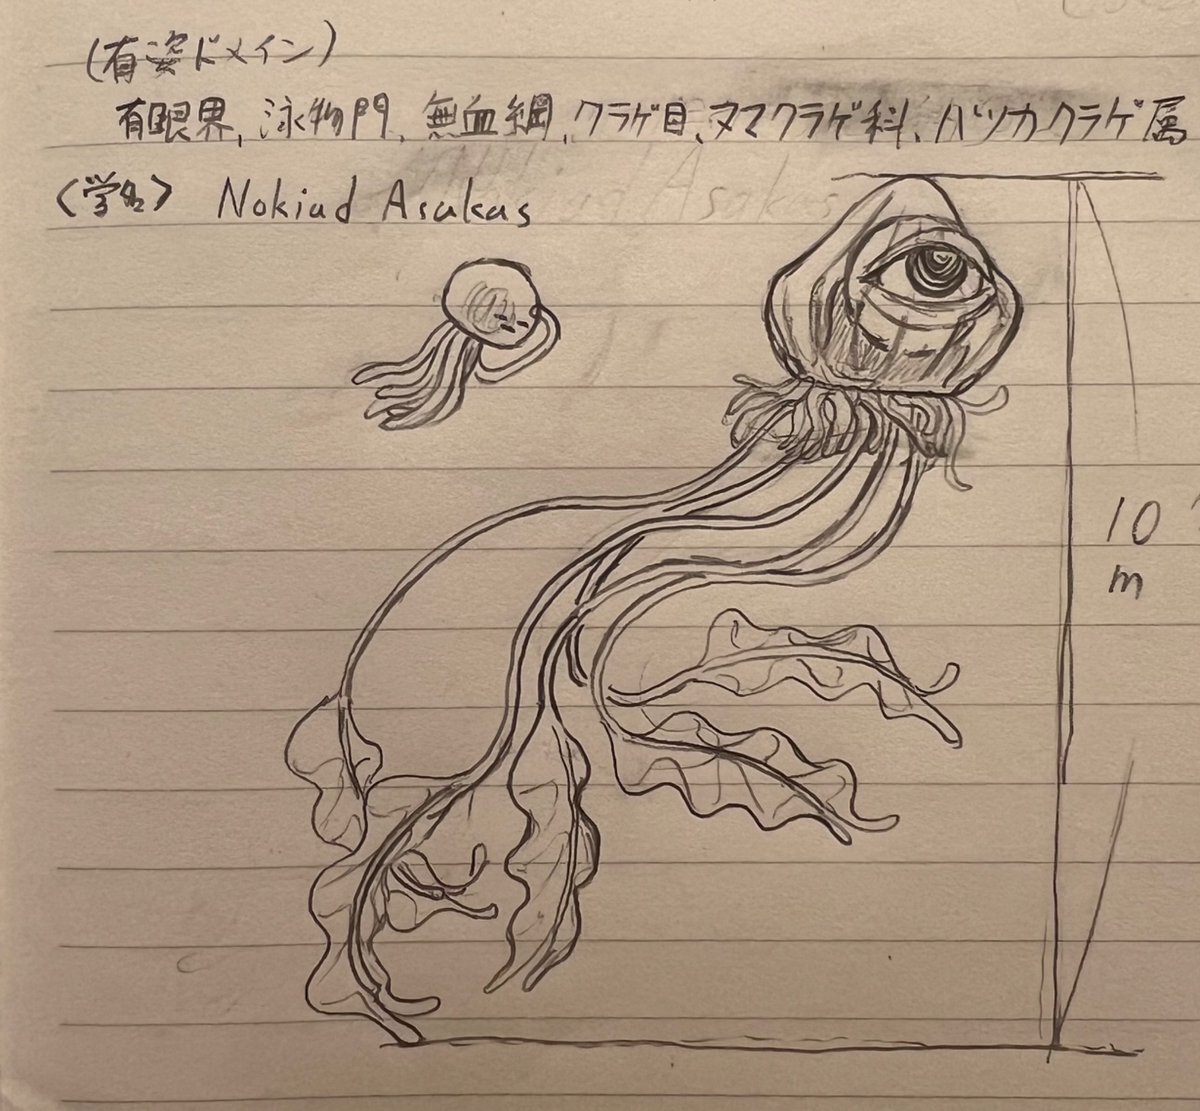 (有姿ドメイン)
有眼界, 泳物門, 無血綱, クラゲ目、ヌマクラゲ科、バツカクラゲ属
<学名> Nokiud Asukas
10
m